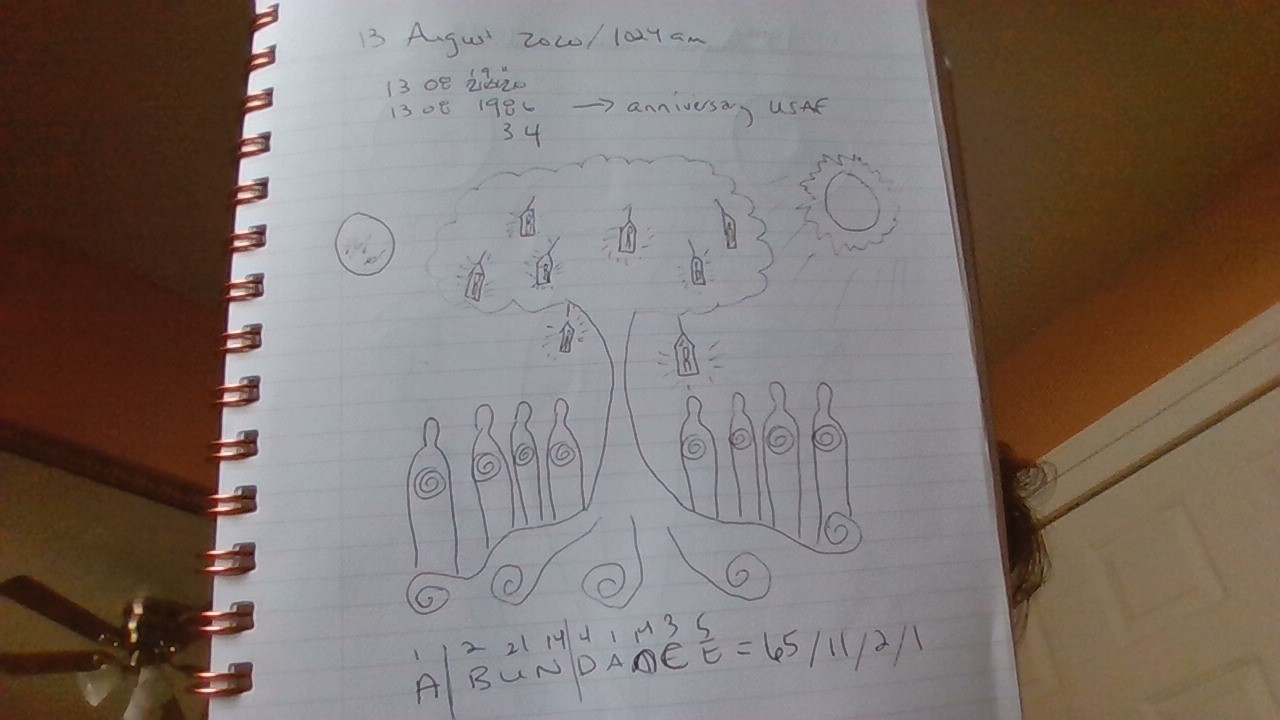 13 August 2020/1024am
13 08 2020
13 08 1986 → anniversary USAF
34
1 2 21 14 4 1 14 3 5
A|BUN|DANCE = 65/11/2/1